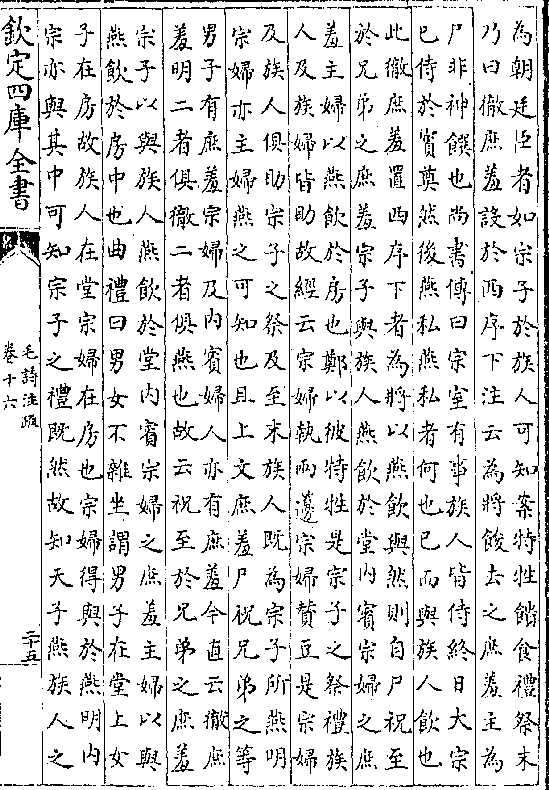 為朝廷臣者如宗子於族人可知案特牲饋食禮祭末
乃曰徹庶羞設於西序下注云為將餕去之庶羞主為
尸非神饌也尚書傳曰宗室有事族人皆侍終日大宗
已侍於賓奠然後燕私燕私者何也已而與族人飲也
此徹庶羞置西序下者為將以燕飲與然則自尸祝至
於兄弟之庶羞宗子與族人燕飲於堂内賓宗婦之庶
羞主婦以燕飲於房也鄭以彼特牲是宗子之祭禮族
人及族婦皆助故經云宗婦執兩籩宗婦贊豆是宗婦
及族人俱助宗子之祭及至末族人既為宗子所燕明
宗婦亦主婦燕之可知也且上文庶羞尸祝兄弟之等
男子有庶羞宗婦及内賓婦人亦有庶羞今直云徹庶
羞明二者俱徹二者俱燕也故云祝至於兄弟之庶羞
宗子以與族人燕飲於堂内賓宗婦之庶羞主婦以與
燕飲於房中也曲禮曰男女不雜坐謂男子在堂上女
子在房故族人在堂宗婦在房也宗婦得與於燕明内
宗亦與其中可知宗子之禮既然故知天子燕族人之
欽定四庫全書
毛詩注疏
卷十六
二十五